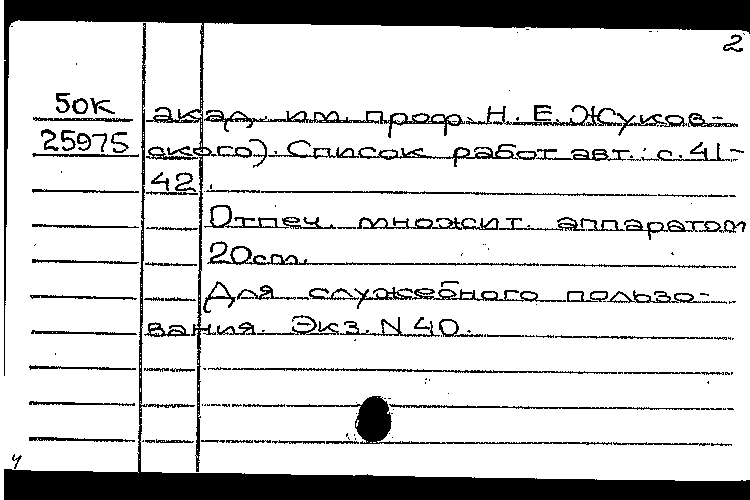 2
50К акад. им. проф. Н. Е. Жуков-
25975 ского). Список работ авт.: с. 41-
42.
Отпеч. множит. аппаратом
20см.
Для служебного пользо-
вания. Экз. N 40.